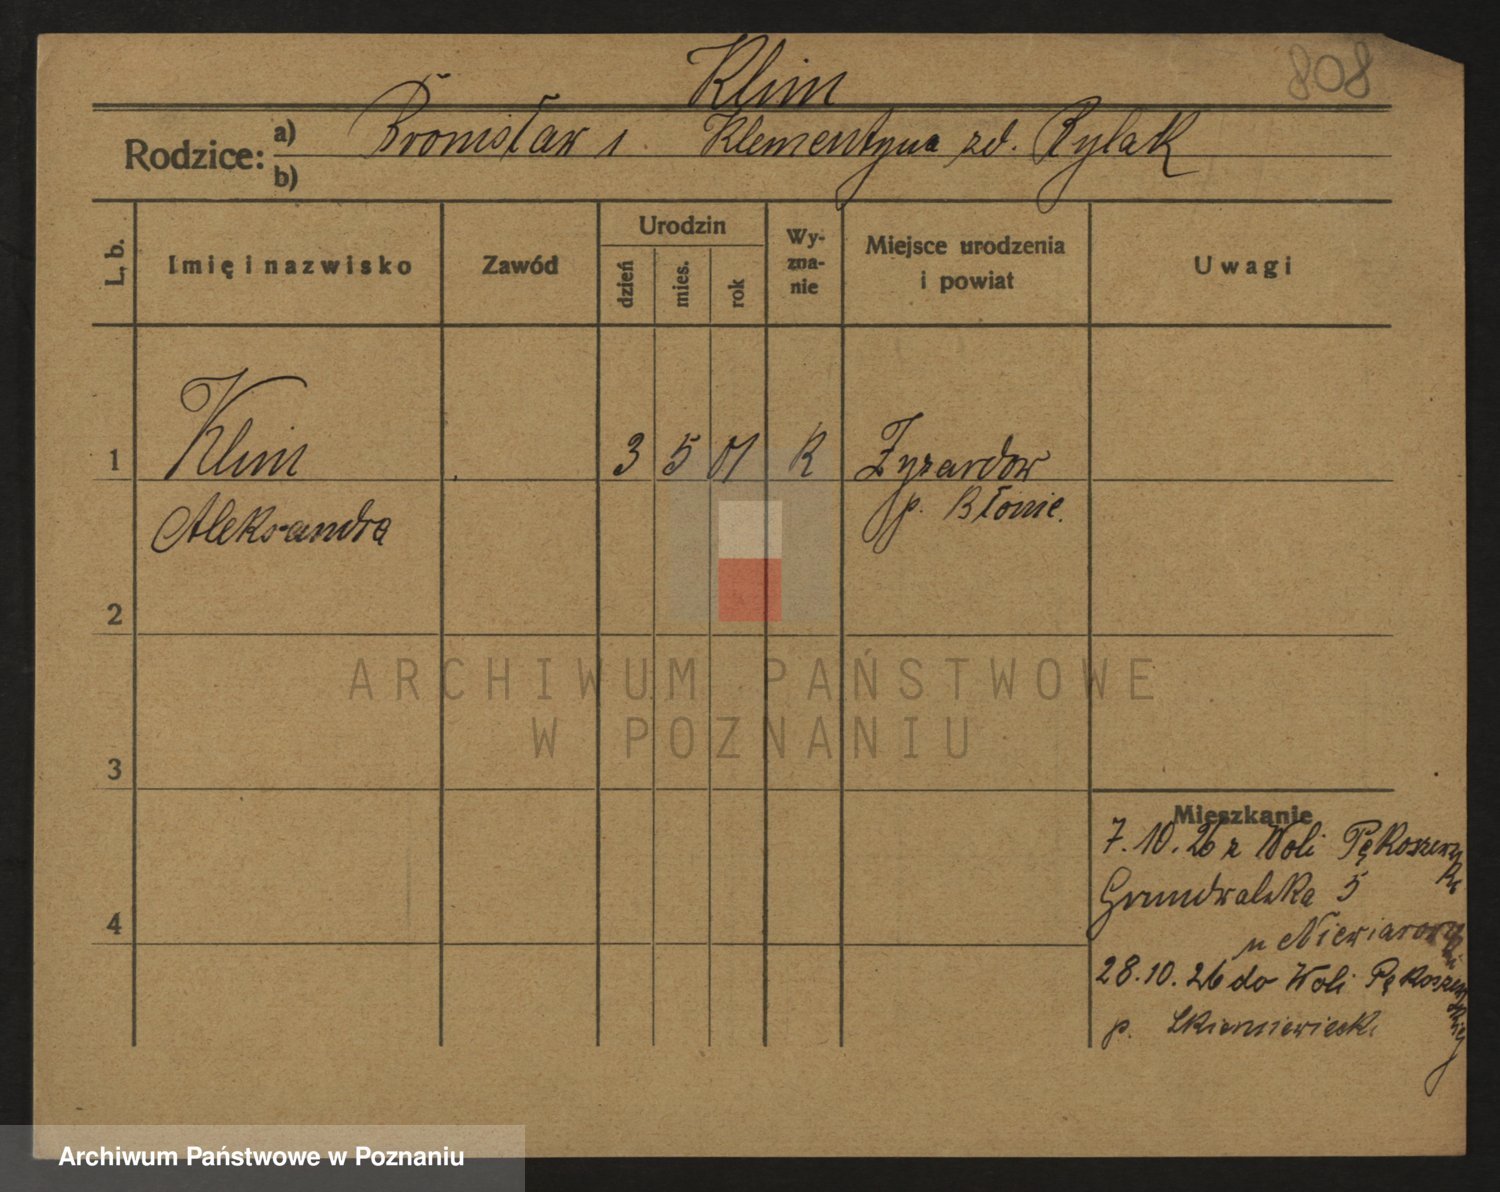 Klim
808
Rodzice:
a) Bronisław i Klementyna zd. Rylak
b)
L. b.
Imię i nazwisko
Zawód
Urodzin
dzień
mies.
rok
Wy-
zna-
nie
Miejsce urodzenia
i powiat
Uwagi
1 Klim 3 5 01 R Zyrardow
Aleksandra p. Błonie.
2
3
4
ARCHIWUM PAŃSTWOWE
W POZNANIU
Mieszkanie
7.10.26 z Woli Pękoszew
Grunwalska 5
u Niewiarow
28.10.26 do Woli Pękoszew
p. Skierniewiecki
Archiwum Państwowe w Poznaniu